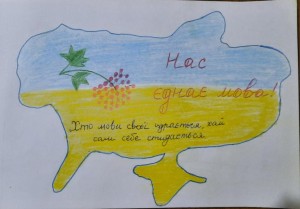 Нас
єднає мова!
Хто мови своєї цурається, хай
сам себе стидається.